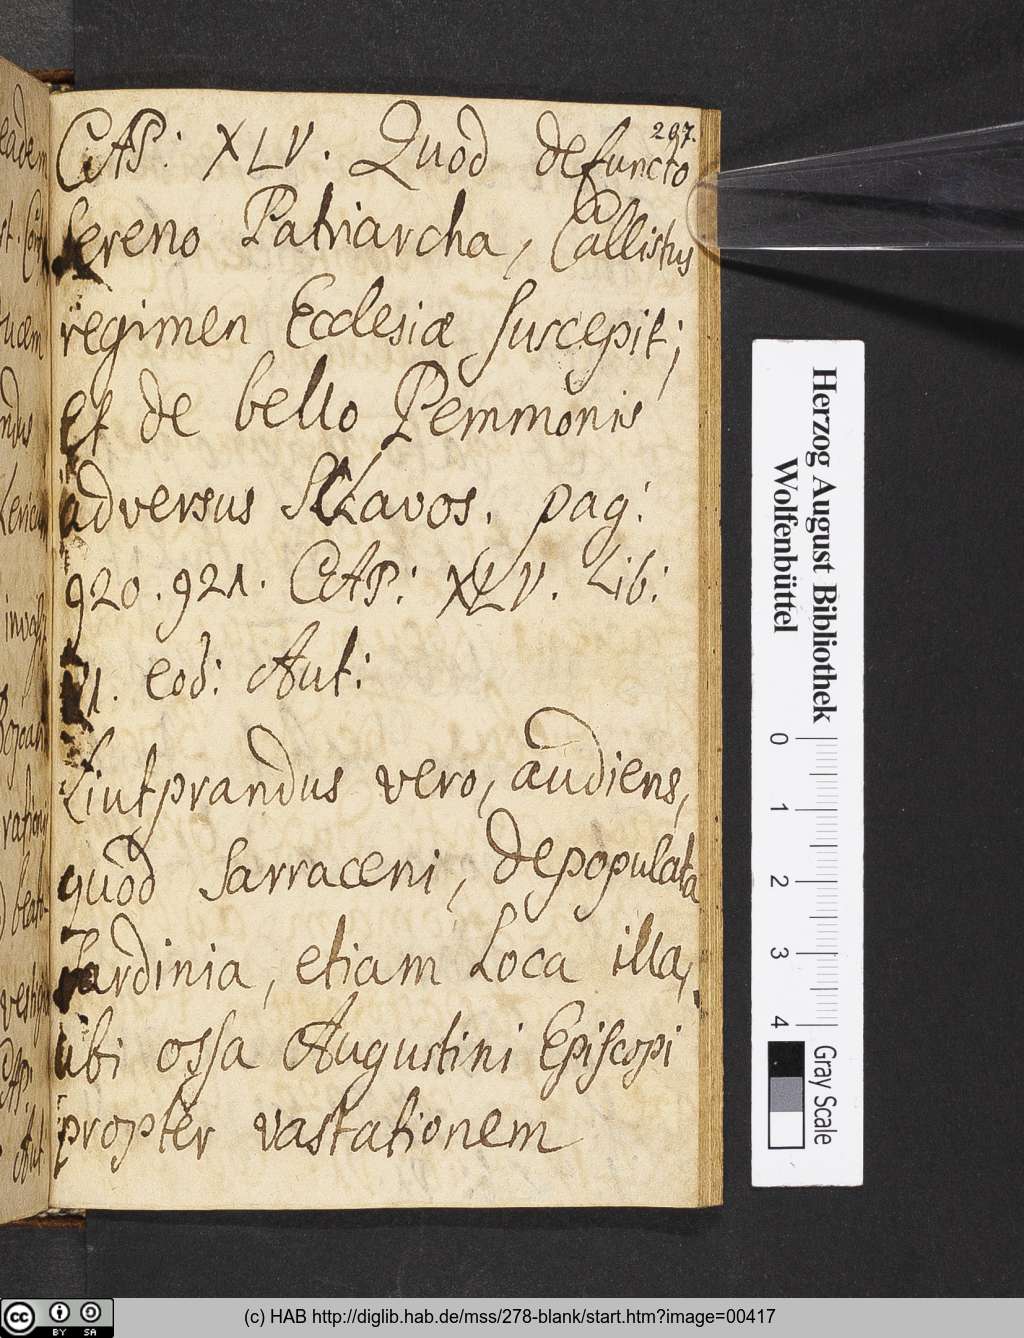 207.
CAP: XLV. Quod defuncto
Sereno Patriarcha, Callistus
regimen Ecclesiæ suscepit;
et de bello Pemmonis
adversus Sclavos. pag:
920. 921. CAP: XLV. Lib:
VI. eod: Aut:
Liutprandus vero, audiens,
quod Sarraceni, depopulata
Sardinia, etiam Loca illa,
ubi ossa Augustini Episcopi
propter vastationem
eadem
ucem
ndus
invas
ratio
Herzog August Bibliothek
Wolfenbüttel
0 1 2 3 4
Gray Scale
cc BY SA
(c) HAB http://diglib.hab.de/mss/278-blank/start.htm?image=00417